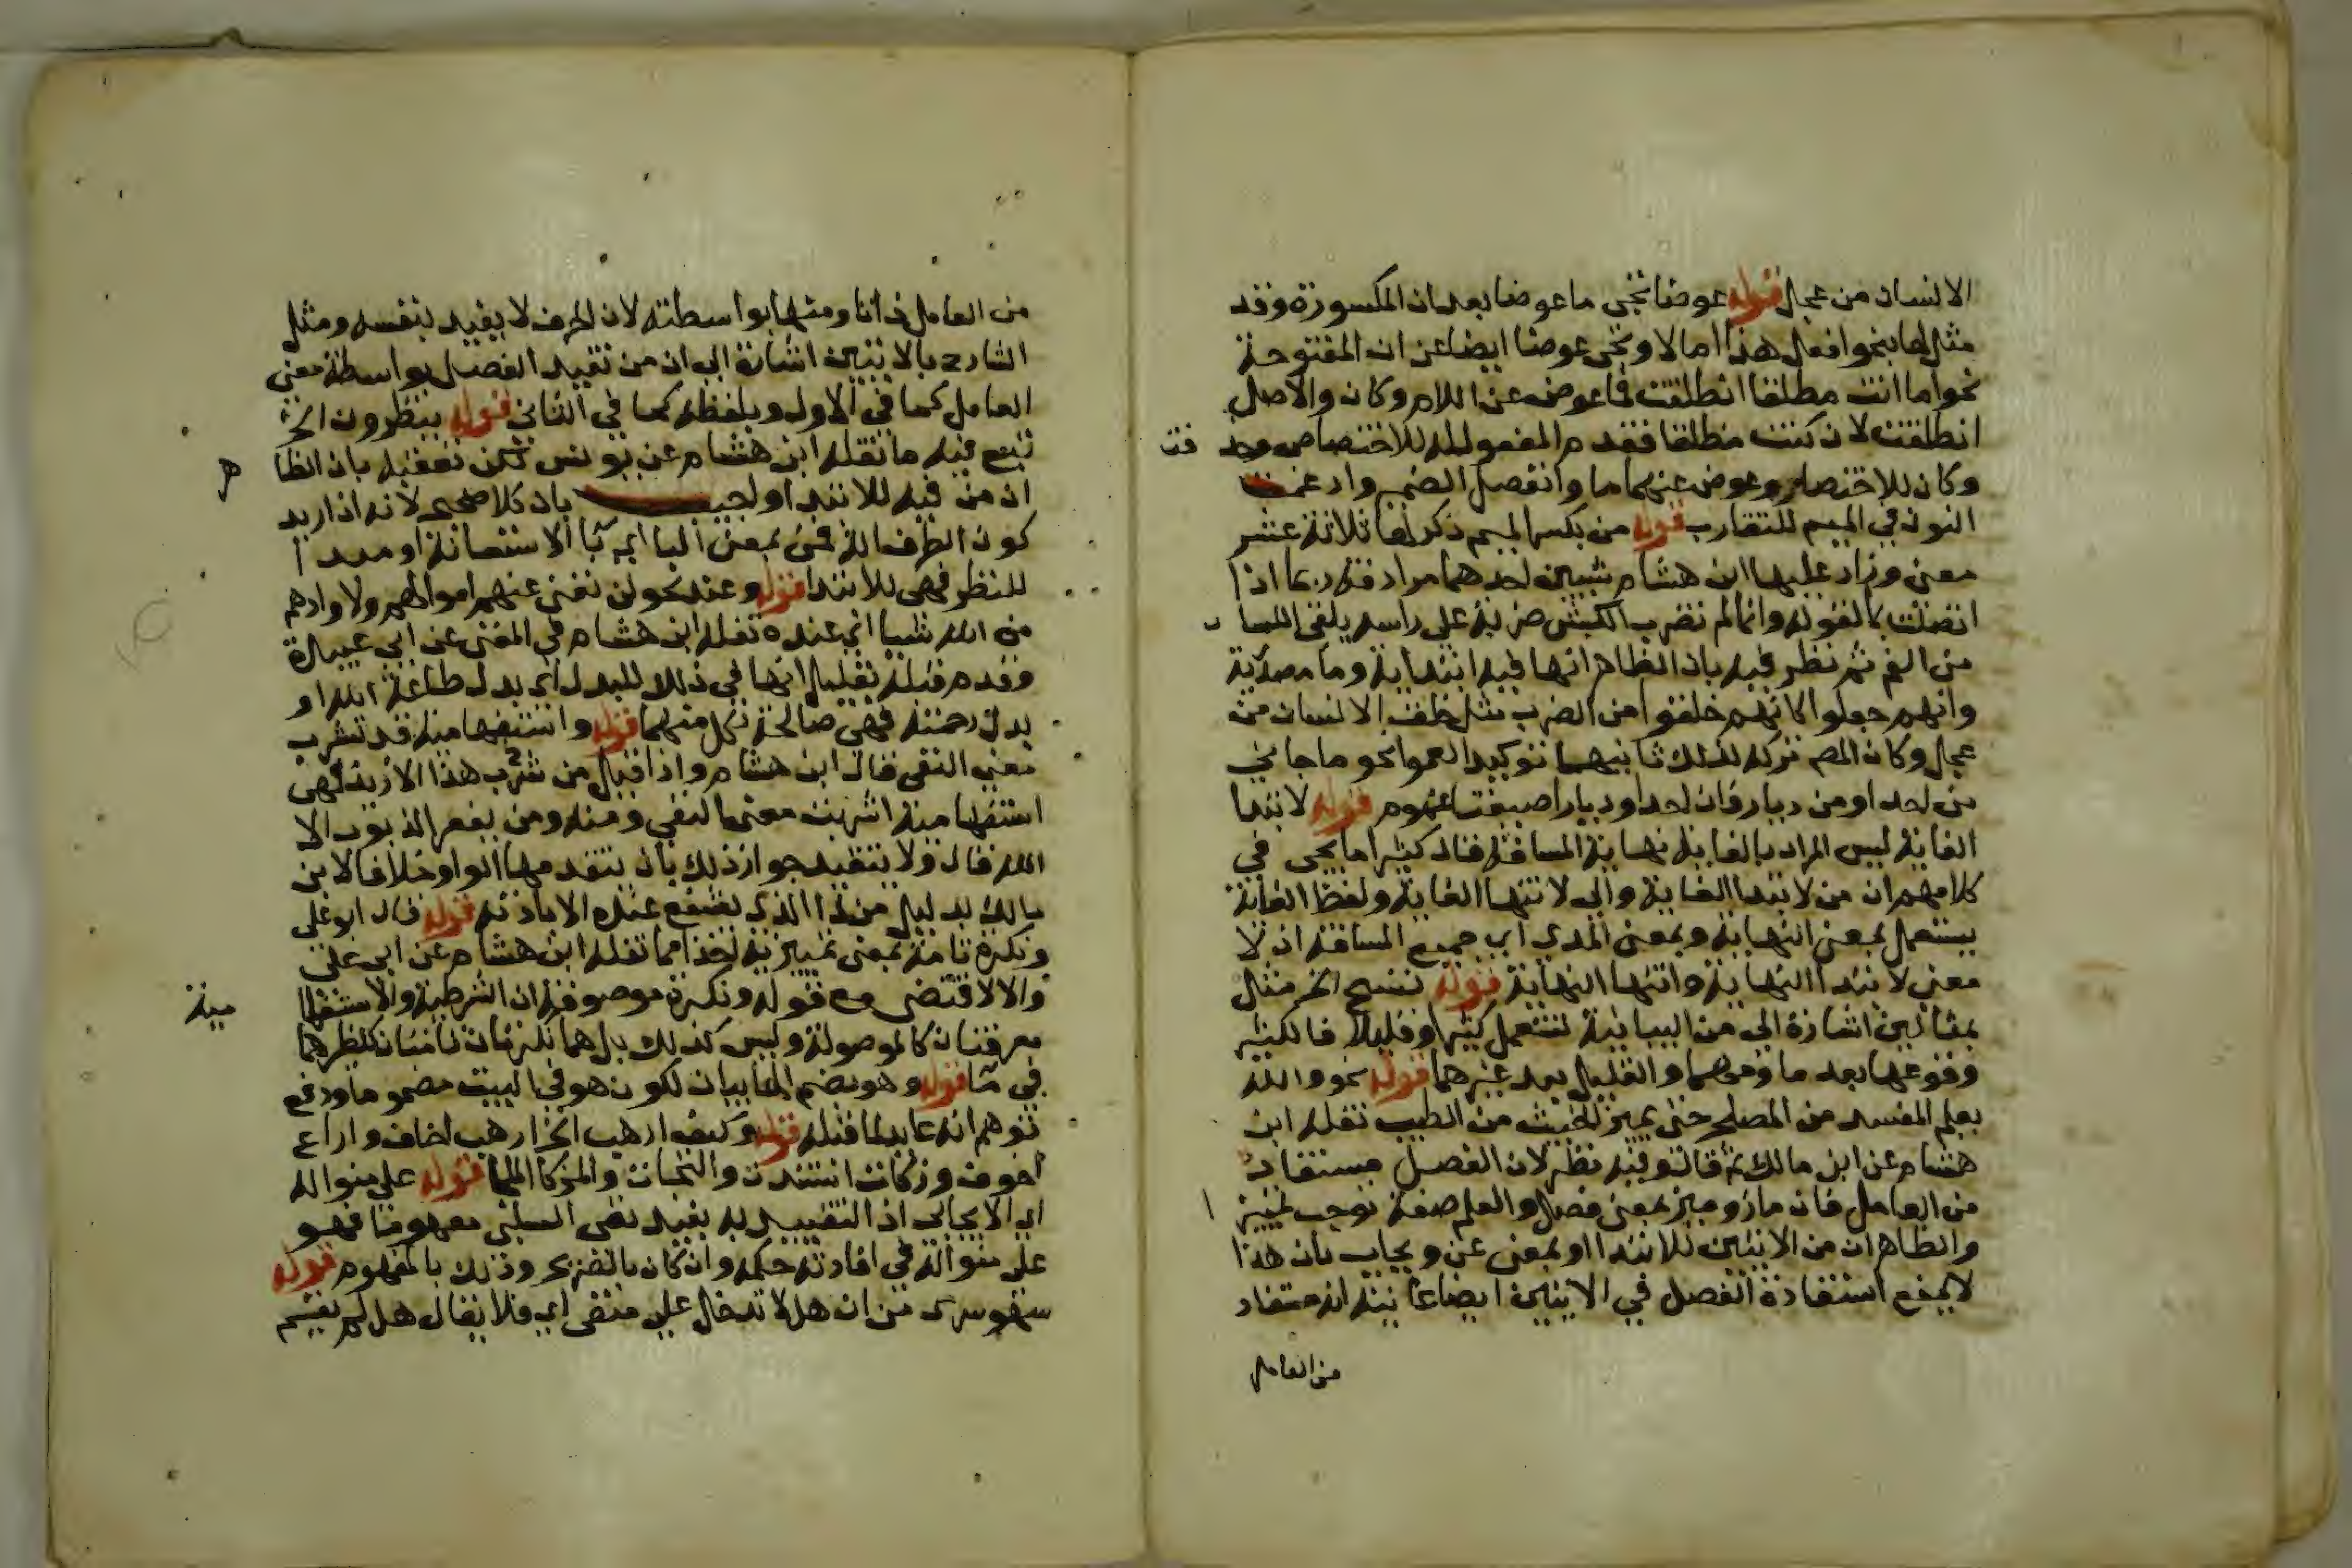 الانسان من عجل قوله عوضا تجي ما عوضا بعد ان المكسورة وقد
مثل لها بنحو افعل هذا اما لا وتجي عوضا ايضا عن ان المفتوحة
نحو اما انت مطلقا انطلقت فما عوض عن اللام وكان والاصل
انطلقت لان كنت منطلقا فقدم المفعول له للاختصاص وحذ فت
وكان للاختصار وعوض عنهما ما وانفصل الضمير وادغمت
النون في الميم للتقارب قوله من بكسر الميم ذكر لها ثلاثة عشر
معنى وزاد عليها ابن هشام شيين احدهما مرادفة ربما اذا
اتصلت بما كقوله وانا لمما نضرب الكبش ضربة على راسه يلقى اللسا ن
من الفم ثم نظر فيه بان الظاهر انها فيه ابتدائية وما مصدرية
وانهم جعلوا كانهم خلقوا من الضرب مثل خلق الانسان من
عجل وكان المص تركه لذلك ثانيهما توكيد العموم نحو ما جاني
من احد او من ديار فان احد او ديار اصيغتا عموم قوله لابتدا
الغاية ليس المراد بالغاية نهاية المسافة فقال كثيرا ما يجي في
كلامهم ان من لابتدا الغاية والى لانتها الغاية ولفظ الغاية
يستعمل بمعنى النهاية وبمعنى المدى اي جميع المسافة اذ لا
معنى لابتدا النهاية وانتها النهاية قوله تنسح الخ مثل
بمثالين اشارة الى من البيانية تستعمل كثيرا وقليلا فالكثير
وقوعها بعد ما ومهما والقليل بعد غيرهما قوله نحو والله
يعلم المفسد من المصلح حتى يميز الخبيث من الطيب نقله ابن
هشام عن ابن مالك ثم قال وفيه نظر لان الفصل مستفاد
من العامل فان ماز وميز بمعنى فصل والعلم صفة توجب تمييز ا
والظاهر ان من الايتين للابتدا او بمعنى عن ويجاب بان هذا
لا يمنع استفادة الفصل في الايتين ايضا غايته انه مستفاد
من العامل
من العامل ذاتا ومنها بواسطته لان الحرف لا يفيد بنفسه ومثل
الشارح بالايتين اشارة الى ان من تفيد الفصل بواسطة معنى
العامل كما في الاول وبلفظه كما في الثاني قوله ينظرون الخ
تبع فيه ما نقله ابن هشام عن يونس لكن تعقبه بان الظا هر
ان من فيه للابتدا واجيب بان كلا صحيح لانه اذا اريد
كون الطرف الة فمن بمعنى البا اي با الاستعانة او مبدا
للنظر فهي للابتدا قوله وعند نحو لن تغني عنهم اموالهم ولا اولادهم
من الله شيا اي عنده نقله ابن هشام في المغني عن ابي عبيدة
وقدم قبله تقليل انها في ذلك للبدل اي بدل طاعة الله او
بدل رحمته فهي صالحة لكل منهما قوله واستفهامية قد تشرب
معنى النفي قال ابن هشام واذا قيل من شرب هذا الا زيد فهي
استفهامية اشربت معنى النفي ومنه ومن يغفر الذنوب الا
الله قال ولا يتقيد جواز ذلك بان يتقدمها الواو خلافا لابن
مالك بدليل من ذا الذي يشفع عنده الا باذنه قوله قال ابو علي
ونكرة تامة بمعنى تمييزية اخذا مما نقله ابن هشام عن ابي علي
والا لاقتضى مع قوله ونكرة موصوفة ان الشرطية والاستفها مية
معرفتان كالموصولة وليس كذلك بل هما نكرتان تامتان كنظيرهما
في ما قوله وهو بضم الها بيان لكون هو في البيت مضموما ودفع
توهم انه عايد لما قبله قوله وكيف ارهب الخ ارهب اخاف واراع
اخوف وزكات استندت والتجات والمزكا الملجا قوله على منواله
اي الايجابي اذ التقييد به يفيد نفي السلبي مفهوما فهو
على منواله في افادته حكمه وان كان بالصريح وذلك بالمفهوم قوله
سهو سرى من ان هل لا تدخل على منفى اي فلا يقال هل لم يقم